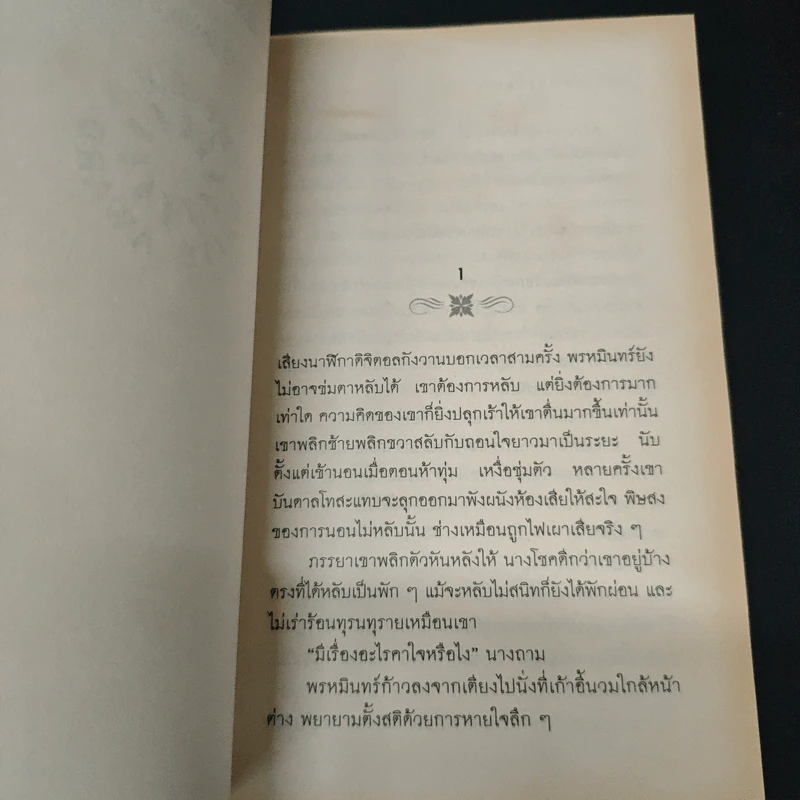 1
เสียงนาฬิกาดิจิตอลกังวานบอกเวลาสามครั้ง พรหมินทร์ยัง
ไม่อาจข่มตาหลับได้ เขาต้องการหลับ แต่ยิ่งต้องการมาก
เท่าใด ความคิดของเขาก็ยิ่งปลุกเร้าให้เขาตื่นมากขึ้นเท่านั้น
เขาพลิกซ้ายพลิกขวาสลับกับถอนใจยาวมาเป็นระยะ นับ
ตั้งแต่เข้านอนเมื่อตอนห้าทุ่ม เหงื่อชุ่มตัว หลายครั้งเขา
บันดาลโทสะแทบจะลุกออกมาพังผนังห้องเสียให้สะใจ พิษสง
ของการนอนไม่หลับนั้น ช่างเหมือนถูกไฟเผาเสียจริง ๆ
ภรรยาเขาพลิกตัวหันหลังให้ นางโชคดีกว่าเขาอยู่บ้าง
ตรงที่ได้หลับเป็นพัก ๆ แม้จะหลับไม่สนิทก็ยังได้พักผ่อน และ
ไม่เร่าร้อนทุรนทุรายเหมือนเขา
“มีเรื่องอะไรคาใจหรือไง” นางถาม
พรหมินทร์ก้าวลงจากเตียงไปนั่งที่เก้าอี้นวมใกล้หน้า
ต่าง พยายามตั้งสติด้วยการหายใจลึก ๆ